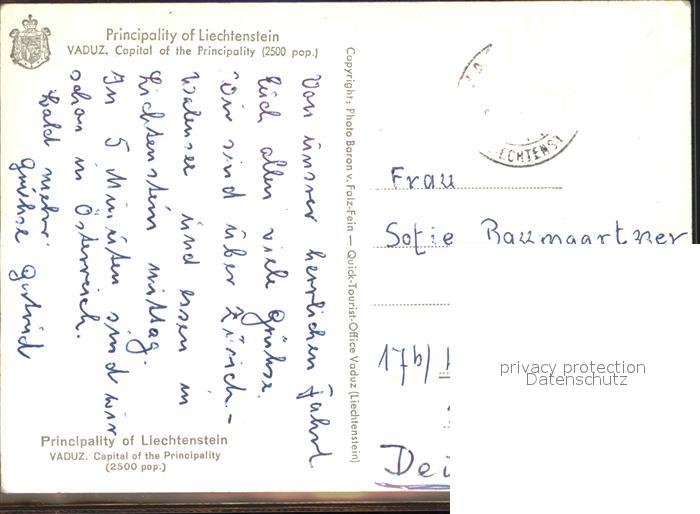 Principality of Liechtenstein
VADUZ. Capital of the Principality (2500 pop.)
Von unsrer herrlichen Fahrt
Euch allen viele Grüsse.
Wir sind über Zürich -
Walensee und essen in
Lichtenstein mittag.
In 5 Minuten sind wir
schon in Österreich.
bald mehr.
Grüsse Gertrud
Principality of Liechtenstein
VADUZ. Capital of the Principality
(2500 pop.)
Copyright: Photo Baron v. Falz-Fein — Quick-Tourist-Office Vaduz (Liechtenstein)
ECHTENST
Frau
Sofie Baumgartner
17b/
privacy protection
Datenschutz